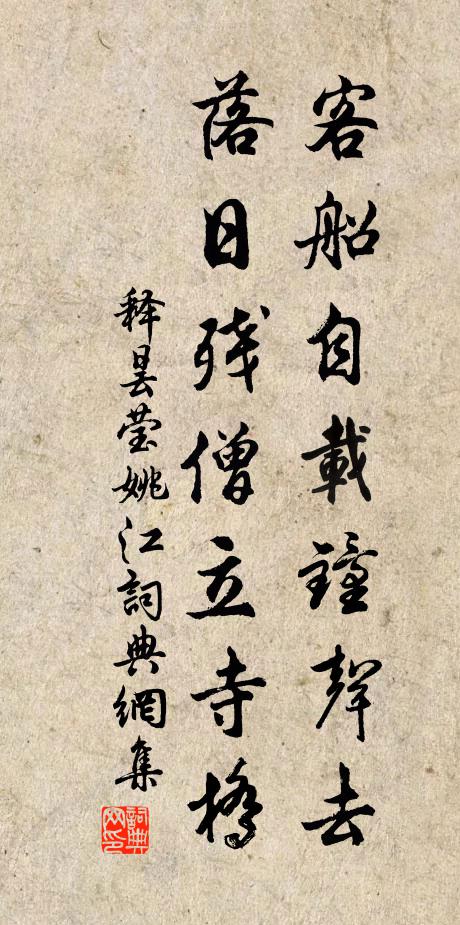 客船自載鐘聲去
落日殘僧立寺橋
释曇瑩姚江詞典網集
詞典网印